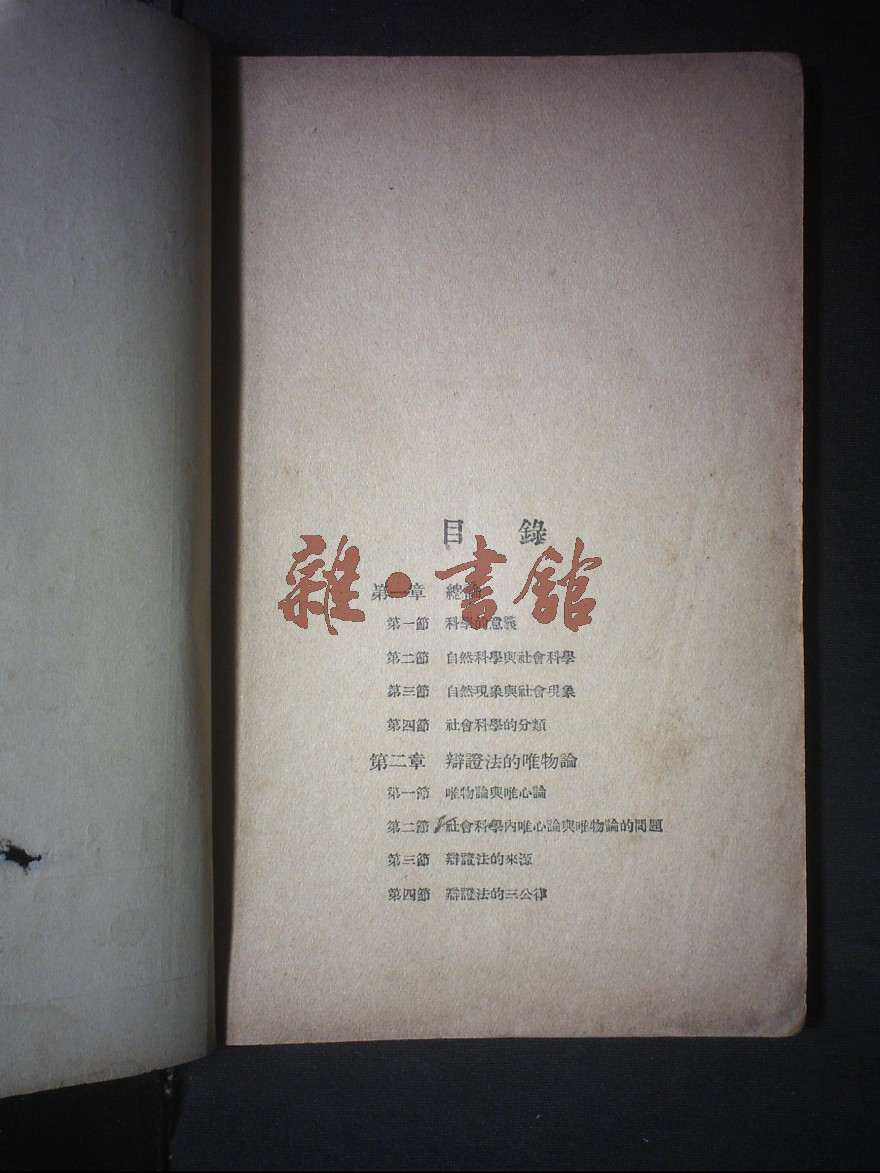 目 錄
雜·書館
第一章 總論
第一節 科學的意義
第二節 自然科學與社會科學
第三節 自然現象與社會現象
第四節 社會科學的分類
第二章 辯證法的唯物論
第一節 唯物論與唯心論
第二節 社會科學內唯心論與唯物論的問題
第三節 辯證法的來源
第四節 辯證法的三公律